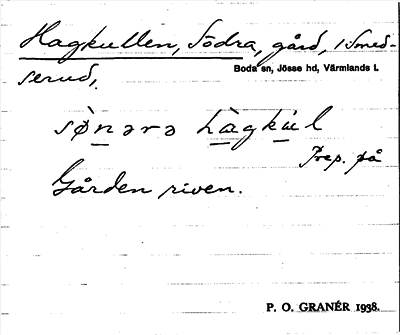 Hagkullen, Södra, gård, i Smed-
serud,
Boda sn, Jösse hd, Värmlands l.
sø̀nərə hàgkùl
Prep. på
Gården riven.
P. O. GRANÉR 1938.